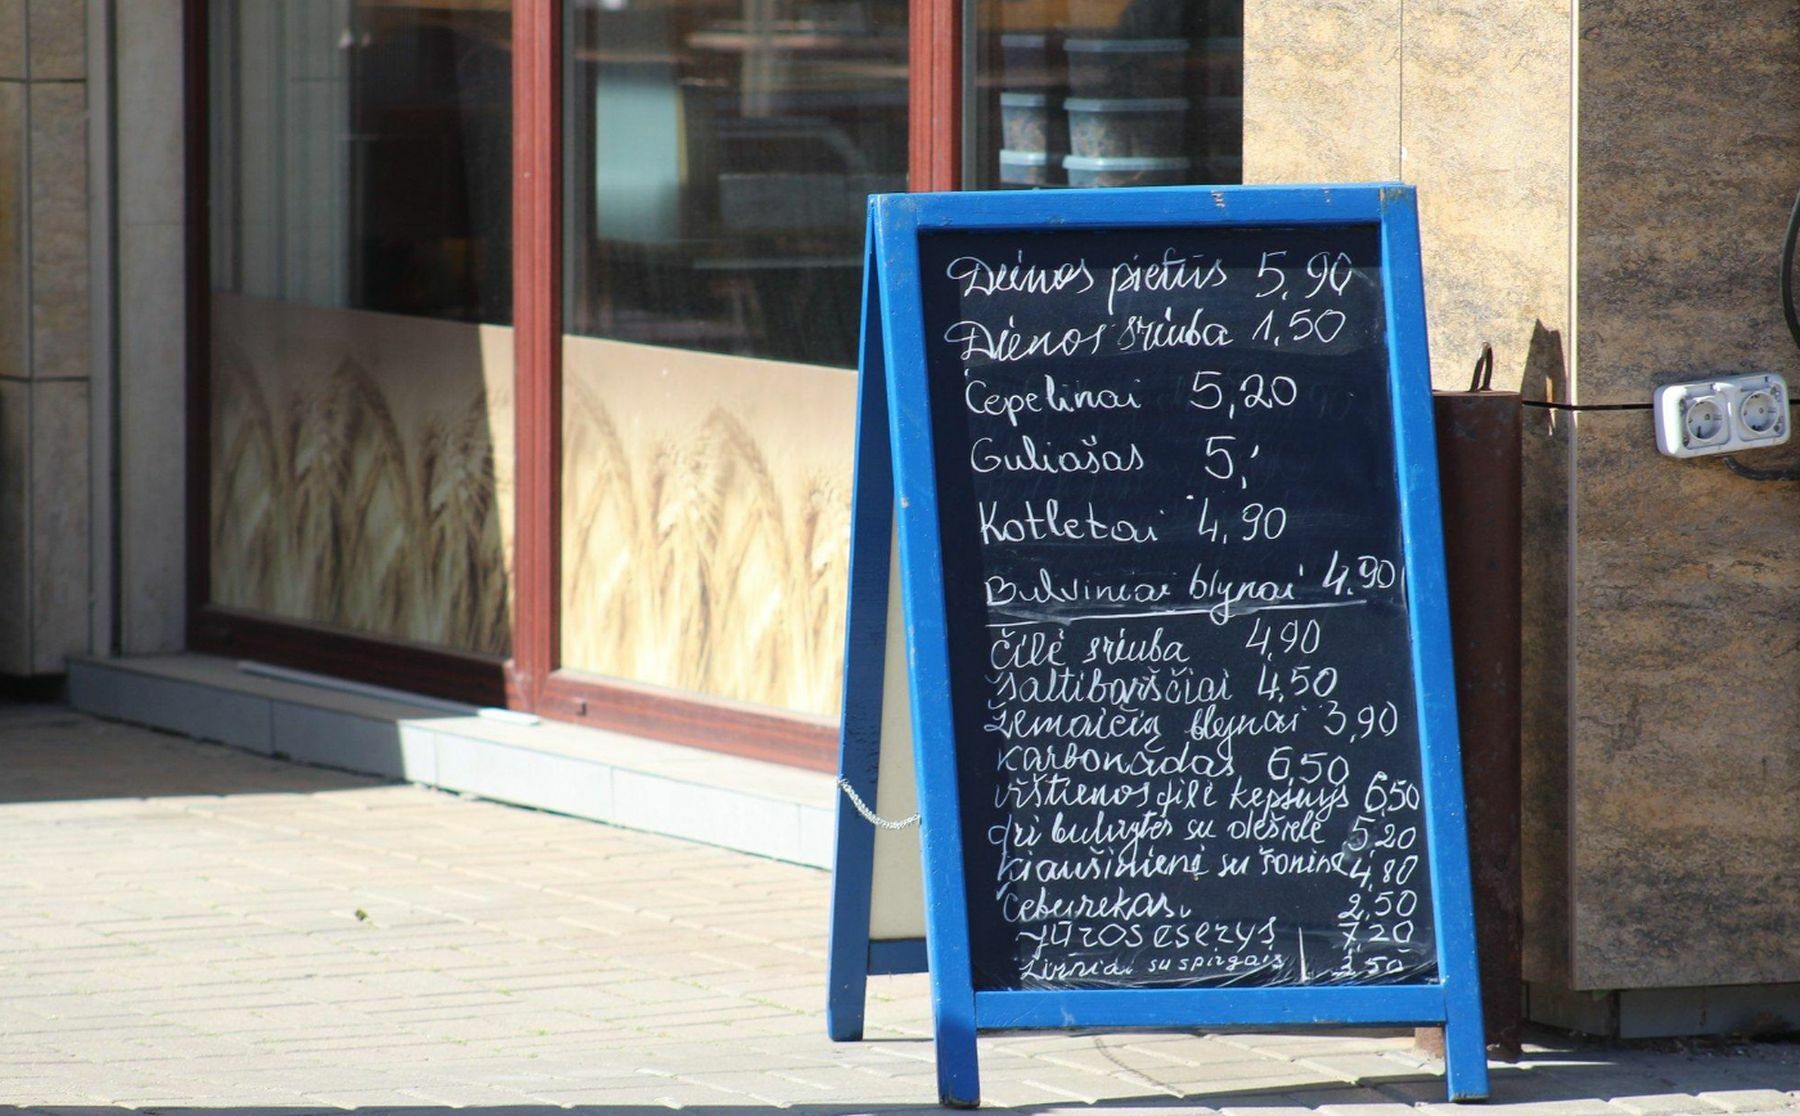 Dienos pietūs 5,90
Dienos sriuba 1,50
Cepelinai 5,20
Guliašas 5,-
Kotletai 4,90
Bulviniai blynai 4.90
Čili sriuba 4,90
Šaltibarščiai 4,50
Žemaičių blynai 3,90
Karbonadas 6,50
Vištienos filė kepsnys 6,50
su dešrele 5,20
Kiaušinienė su šonine 4,80
Čeburekas 2,50
Jūros eserys 7,20
Žirniai su spirgais 3,50